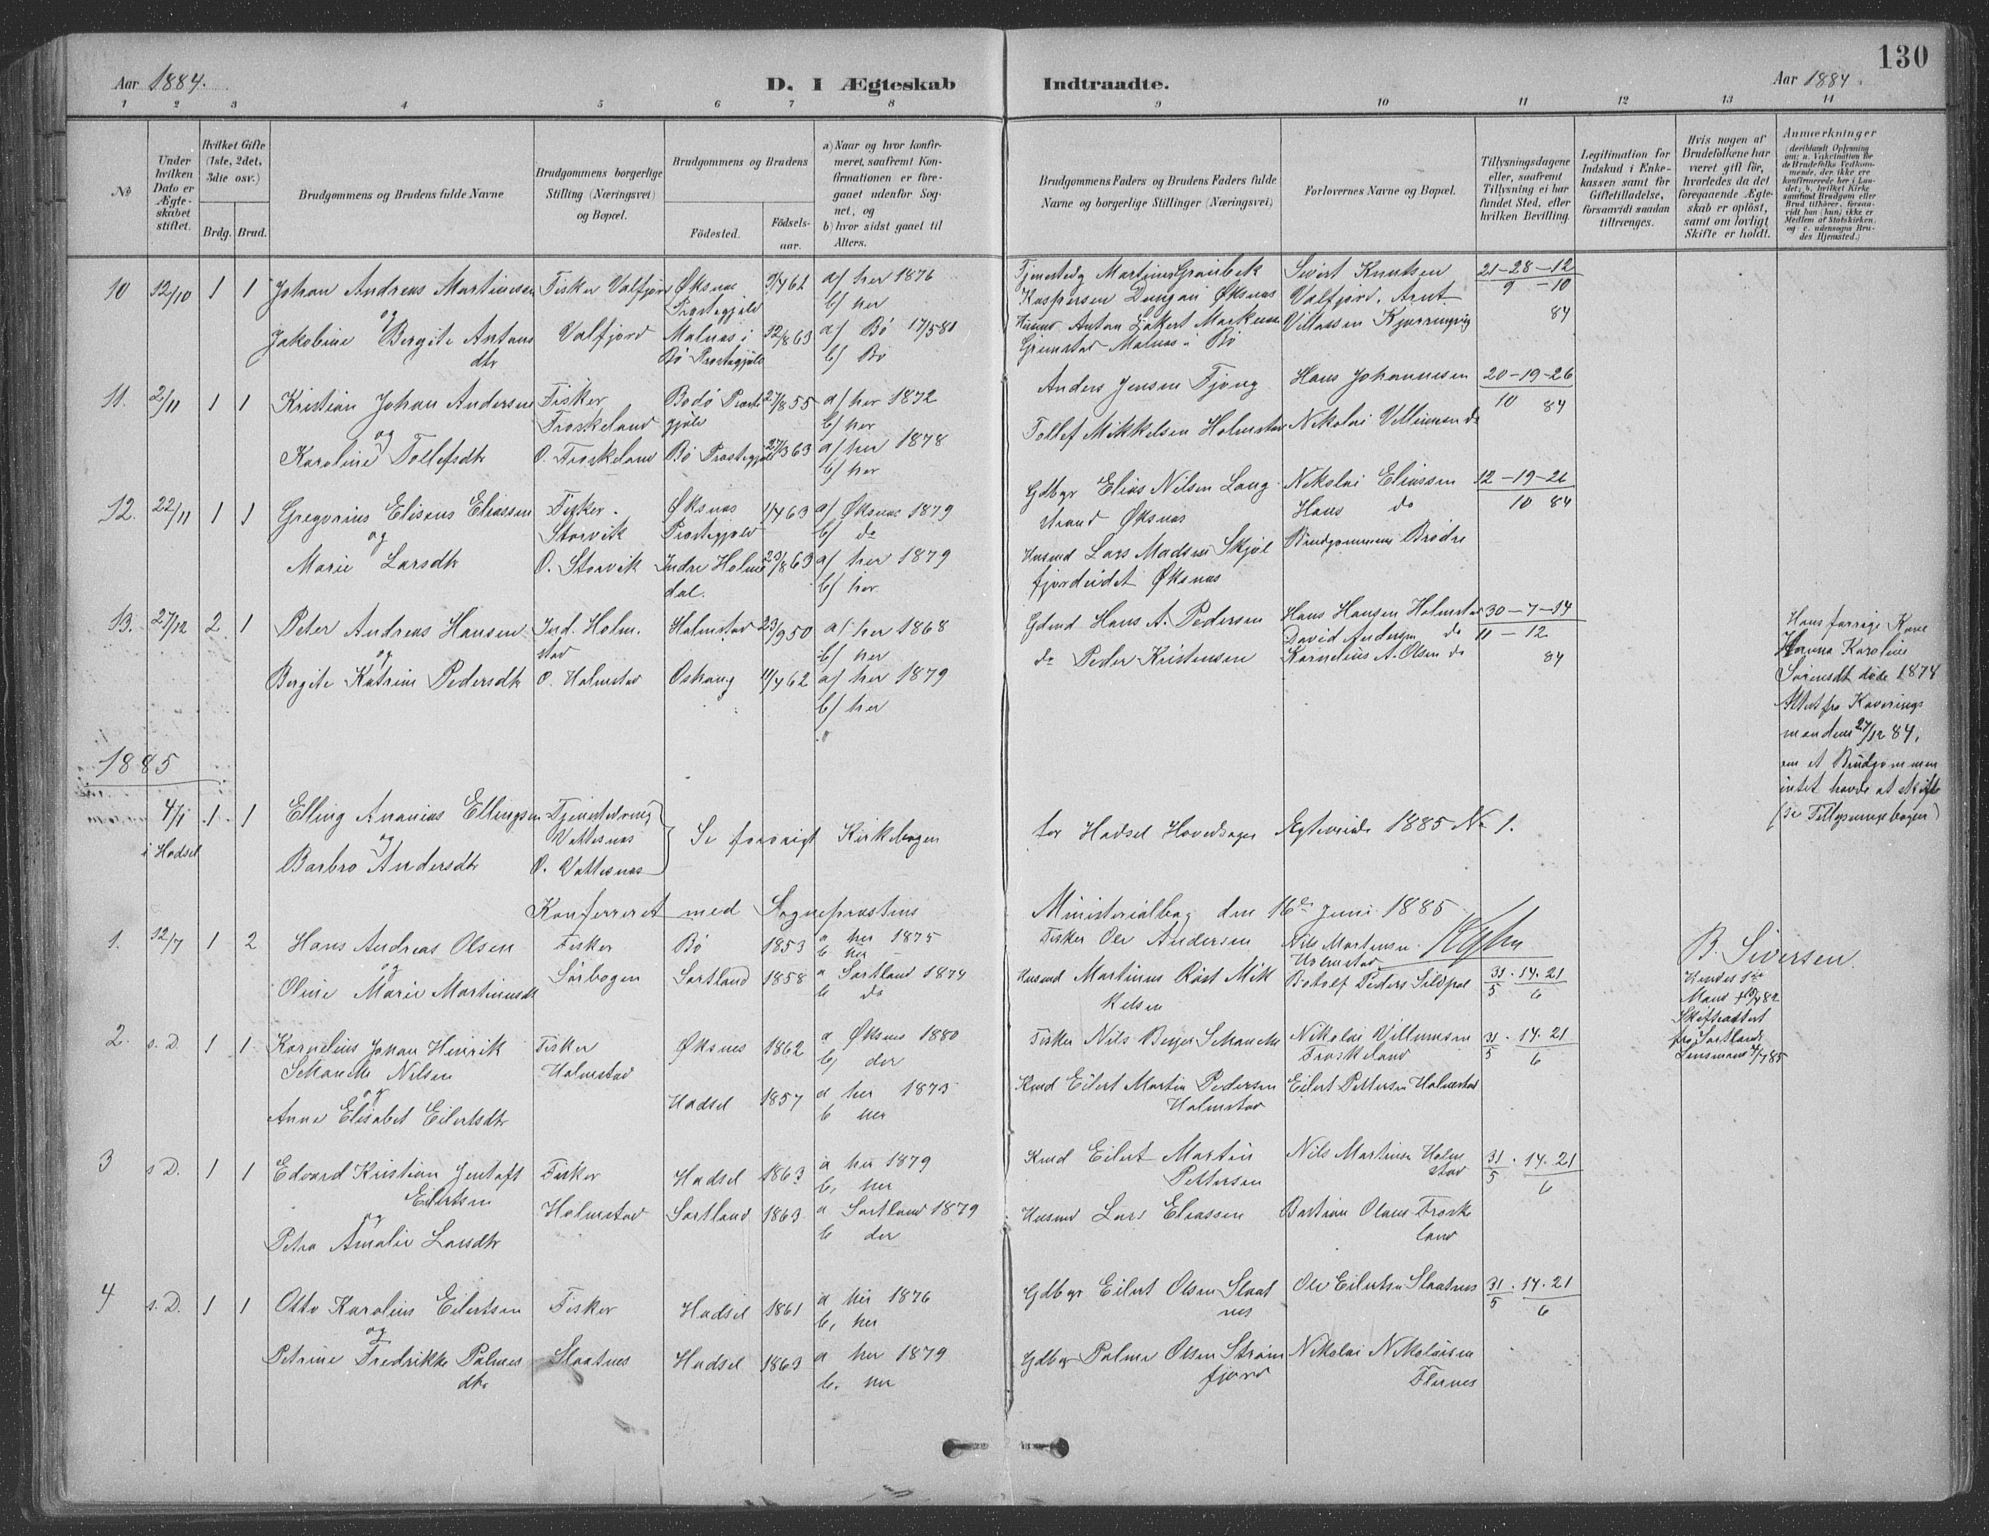 130
Aar 1884.
D. I Ægteskab
Indtraadte.
Aar 1884
1 2 3 4 5 6 7 8 9 10 11 12 13 14
No
Under hvilken Dato er Ægteskabet stiftet.
Hvilket Gifte (1ste, 2det, 3die osv.)
Brdg. Brud.
Brudgommens og Brudens fulde Navne
Brudgommens borgerlige Stilling (Næringsvei) og Bopæl.
Brudgommens og Brudens
Fødested.
Fødselsaar.
a) Naar og hvor konfirmeret, saafremt Konfirmationen er foregaaet udenfor Sognet, og
b) hvor sidst gaaet til Alters.
Brudgommens Faders og Brudens Faders fulde Navne og borgerlige Stillinger (Næringsvei)
Forlovernes Navne og Bopæl.
Tillysningsdagene eller, saafremt Tillysning ei har fundet Sted, efter hvilken Bevilling.
Legitimation for Indskud i Enkekassen samt for Giftetilladelse, forsaavidt saadan tiltrænges.
Hvis nogen af Brudefolkene har været gift før, hvorledes da det foregaaende Ægteskab er opløst, samt om lovligt Skifte er holdt.
Anmærkninger
10 12/10 1 1 Johan Andreas Martinesen Fisker Valfjord Øksnæs Præstegjæld 9/4 61 a/ her 1876 b/ her
og
Jakobine Bergite Antonsdtr Valfjord Malnæs i Bø Præstegjæld 12/8 63 a/ Bø 17/5 81 b/ Bø
Kaspersen Øksnæs
Sivert Knutsen Valfjord. Arnt
21-28-12
9 - 10
84
11. 2/11 1 1 Kristian Johan Andersen Fisker Froskeland Bodø Præstegjæld 27/8 55 a/ her 1872 b/ her
og
Karoline Tollefsdtr O. Froskeland Bø Præstegjæld 27/3 63 a/ her 1878 b/ her
Anders Jensen Fjong Hans Johannesen
Tollef Mikkelsen Holmstad Nikolai Villumsen do
20-19-26
10 84
12. 22/11 1 1 Gregorius Elisæus Eliassen Fisker. Storvik Øksnæs Præstegjæld 1/4 63 a/ Øksnæs 1879 b/ do
og
Marie Larsdtr O. Storvik Indre Holmedal. 23/8 63 a/ her 1879 b/ her
Gdbgr Elias Nilsen Langstrand Øksnæs
Husmd Lars Madsen Skjelfjordeidet Øksnæs
Nikolai Eliassen
Hans do
Brudgommens Brødre
12-19-26
10 84
13. 27/12 2 1 Peter Andreas Hansen Ind. Holmstad Holmstad 23/9 50 a/ her 1868 b/ her
og
Bergite Katrine Pedersdtr O. Holmstad Oshaug 11/4 62 a/ her 1879 b/ her
Gdmd Hans A. Pedersen
do Peder Kristensen
Hans Hansen Holmstad
David Andersen do
Kornelius A. Olsen do
30-7-14
11-12
84
Hans forrige Kone
Hanna Karoline
Sørensdt døde 1874
Attest fra Kaverings
mandens 27/12 84,
om at Brudgommen
intet havde at skifte
(se Tillysningsbogen)
1885
4/1 i Hadsel 1 1 Elling Ananias Ellingsen Vottesnæs
og
Barbro Andersdtr O. Vottesnæs
Se forøvrigt Kirkebogen for Hadsel Hovedsogn Ægteviede 1885 No 1.
Konfereret med Sogneprestens Ministerialbog den 16de Juni 1885
B. Sivertsen.
1. 12/7 1 2 Hans Andreas Olsen Fisker Bø 1853 a her 1875 b her
og
Oline Marie Martinusdt Sørbogen Sortland 1858 a Sortland 1874 b do
Fisker Ole Andersen
Husmd Martinus Røst Mikkelsen
Nils Martensen Holmstad
Botolf Peders Sildpol
31/5 · 14·21/6
Hendes 1ste
Mand
Skifteattest
fra Sortlands
Lensmand 4/7 85
2. s. D. 1 1 Kornelius Johan Henrik Schanche Nilsen Fisker Holmstad Øksnes 1862 a Øksnes 1880 b, der
og
Anne Elisabet Eilertsdtr Hadsel 1857 a her 1873 b her
Fisker Nils Berger Schanche
Eilert Martin Pedersen Holmstad
Nikolai Villumsen Froskeland
Eilert Pettersen Holmstad
31/5 · 14·21/6
3 s D. 1 1 Edvard Kristian Jentoft Eilertsen Fisker Hadsel 1863 a her 1879 b, her
og
Petra Amalie Larsdtr Holmstad Sortland 1863 a Sortland 1879 b der
Eilert Martin Pettersen
Husmd Lars Eliassen
Nils Martinsen Holmstad
Bastian Olsen Froskeland
31/5 · 14·21/6
4 s. D. 1 1 Otto Karolius Eilertsen Fisker Hadsel 1861 a her 1876 b, her
og
Petrine Fredrikke Palmesdtr Slaatnes Hadsel 1863 a her 1879 b. her
Gdbgr Eilert Olsen Slaatnes
Gdbgr Palme Olsen Strømfjord
Ole Eilertsen Slaatnes
Nikolai Nikolaisen Flernes
31/5 · 14·21/6